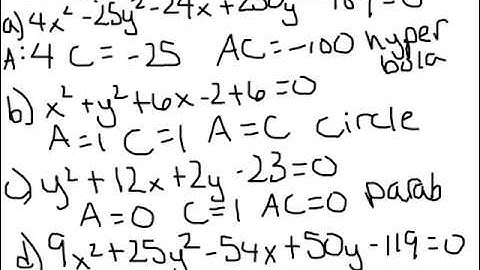 a) 4x² -25y² -24x +250y
A: 4 C = -25 AC = -100 hyper
bola
b) x² + y² +6x -2+6=0
A=1 C=1 A=C circle
c) y² + 12x +2y -23=0
A=0 C=1 AC=0 parab
d) 9x² +25y² -54x +50y -119=0